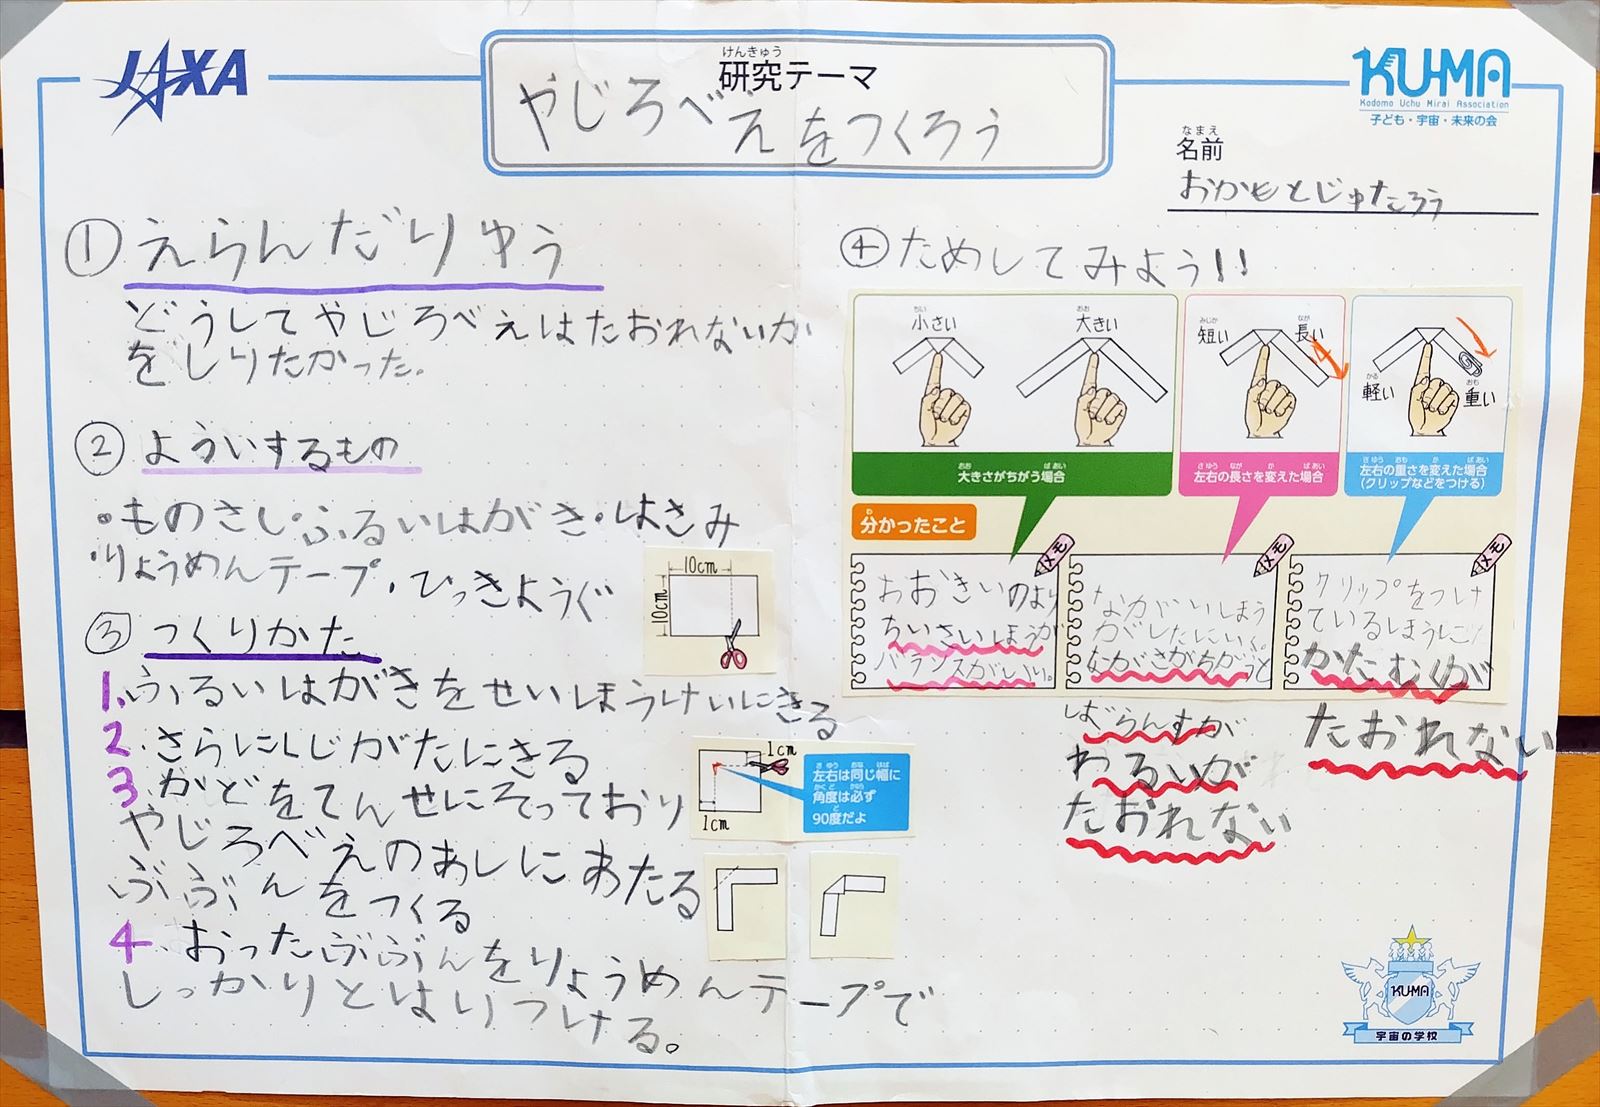 JAXA
けんきゅう
研究テーマ
やじろべえをつくろう
KU-MA
Kodomo Uchu Mirai Association
子ども・宇宙・未来の会
なまえ
名前
おかもとじゅたろう
① えらんだりゆう
どうしてやじろべえはたおれないか
をしりたかった。
② よういするもの
・ものさし・ふるいはがき・はさみ
・りょうめんテープ・ひっきようぐ
10cm
10cm
③ つくりかた
1.ふるいはがきをせいほうけいにきる
2.さらにLじがたにきる
3.かどをてんせにそっており
やじろべえのあしにあたる
ぶぶんをつくる
1cm
1cm
さゆう おな はば
左右は同じ幅に
かくど かなら
角度は必ず
ど
90度だよ
4.おったぶぶんをりょうめんテープで
しっかりとはりつける。
④ ためしてみよう!!
ちい
小さい
おお
大きい
おお ばあい
大きさがちがう場合
みじか
短い
なが
長い
さゆう なが か ばあい
左右の長さを変えた場合
かる
軽い
おも
重い
さゆう おも か ばあい
左右の重さを変えた場合
(クリップなどをつける)
わ
分かったこと
メモ
おおきいのより
ちいさいほうが
バランスがいい。
メモ
ながいいほう
がしたにいく。
ながさがちがうと
ばらんすが
わるいが
たおれない
メモ
クリップをつけ
ているほうに
かたむくが
たおれない
KU-MA
宇宙の学校